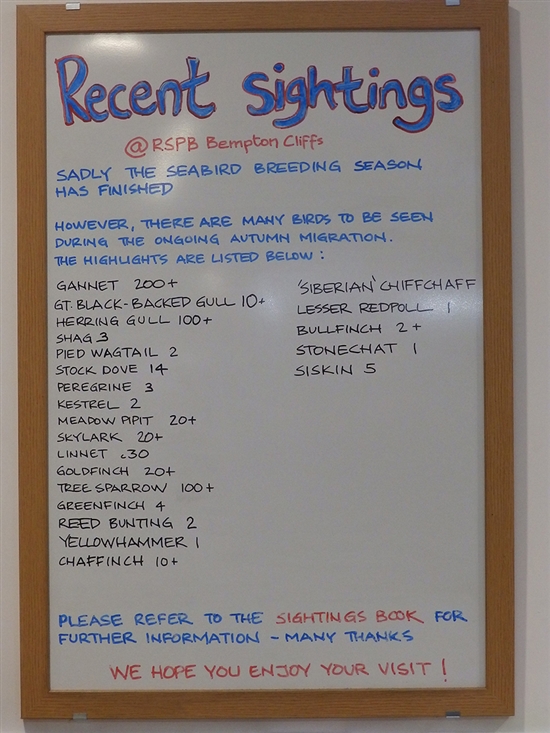 Recent Sightings
@ RSPB Bempton Cliffs
SADLY THE SEABIRD BREEDING SEASON
HAS FINISHED
HOWEVER, THERE ARE MANY BIRDS TO BE SEEN
DURING THE ONGOING AUTUMN MIGRATION.
THE HIGHLIGHTS ARE LISTED BELOW :
GANNET 200+
GT. BLACK-BACKED GULL 10+
HERRING GULL 100+
SHAG 3
PIED WAGTAIL 2
STOCK DOVE 14
PEREGRINE 3
KESTREL 2
MEADOW PIPIT 20+
SKYLARK 20+
LINNET c30
GOLDFINCH 20+
TREE SPARROW 100+
GREENFINCH 4
REED BUNTING 2
YELLOWHAMMER 1
CHAFFINCH 10+
'SIBERIAN' CHIFFCHAFF
LESSER REDPOLL 1
BULLFINCH 2+
STONECHAT 1
SISKIN 5
PLEASE REFER TO THE SIGHTINGS BOOK FOR
FURTHER INFORMATION - MANY THANKS
WE HOPE YOU ENJOY YOUR VISIT !